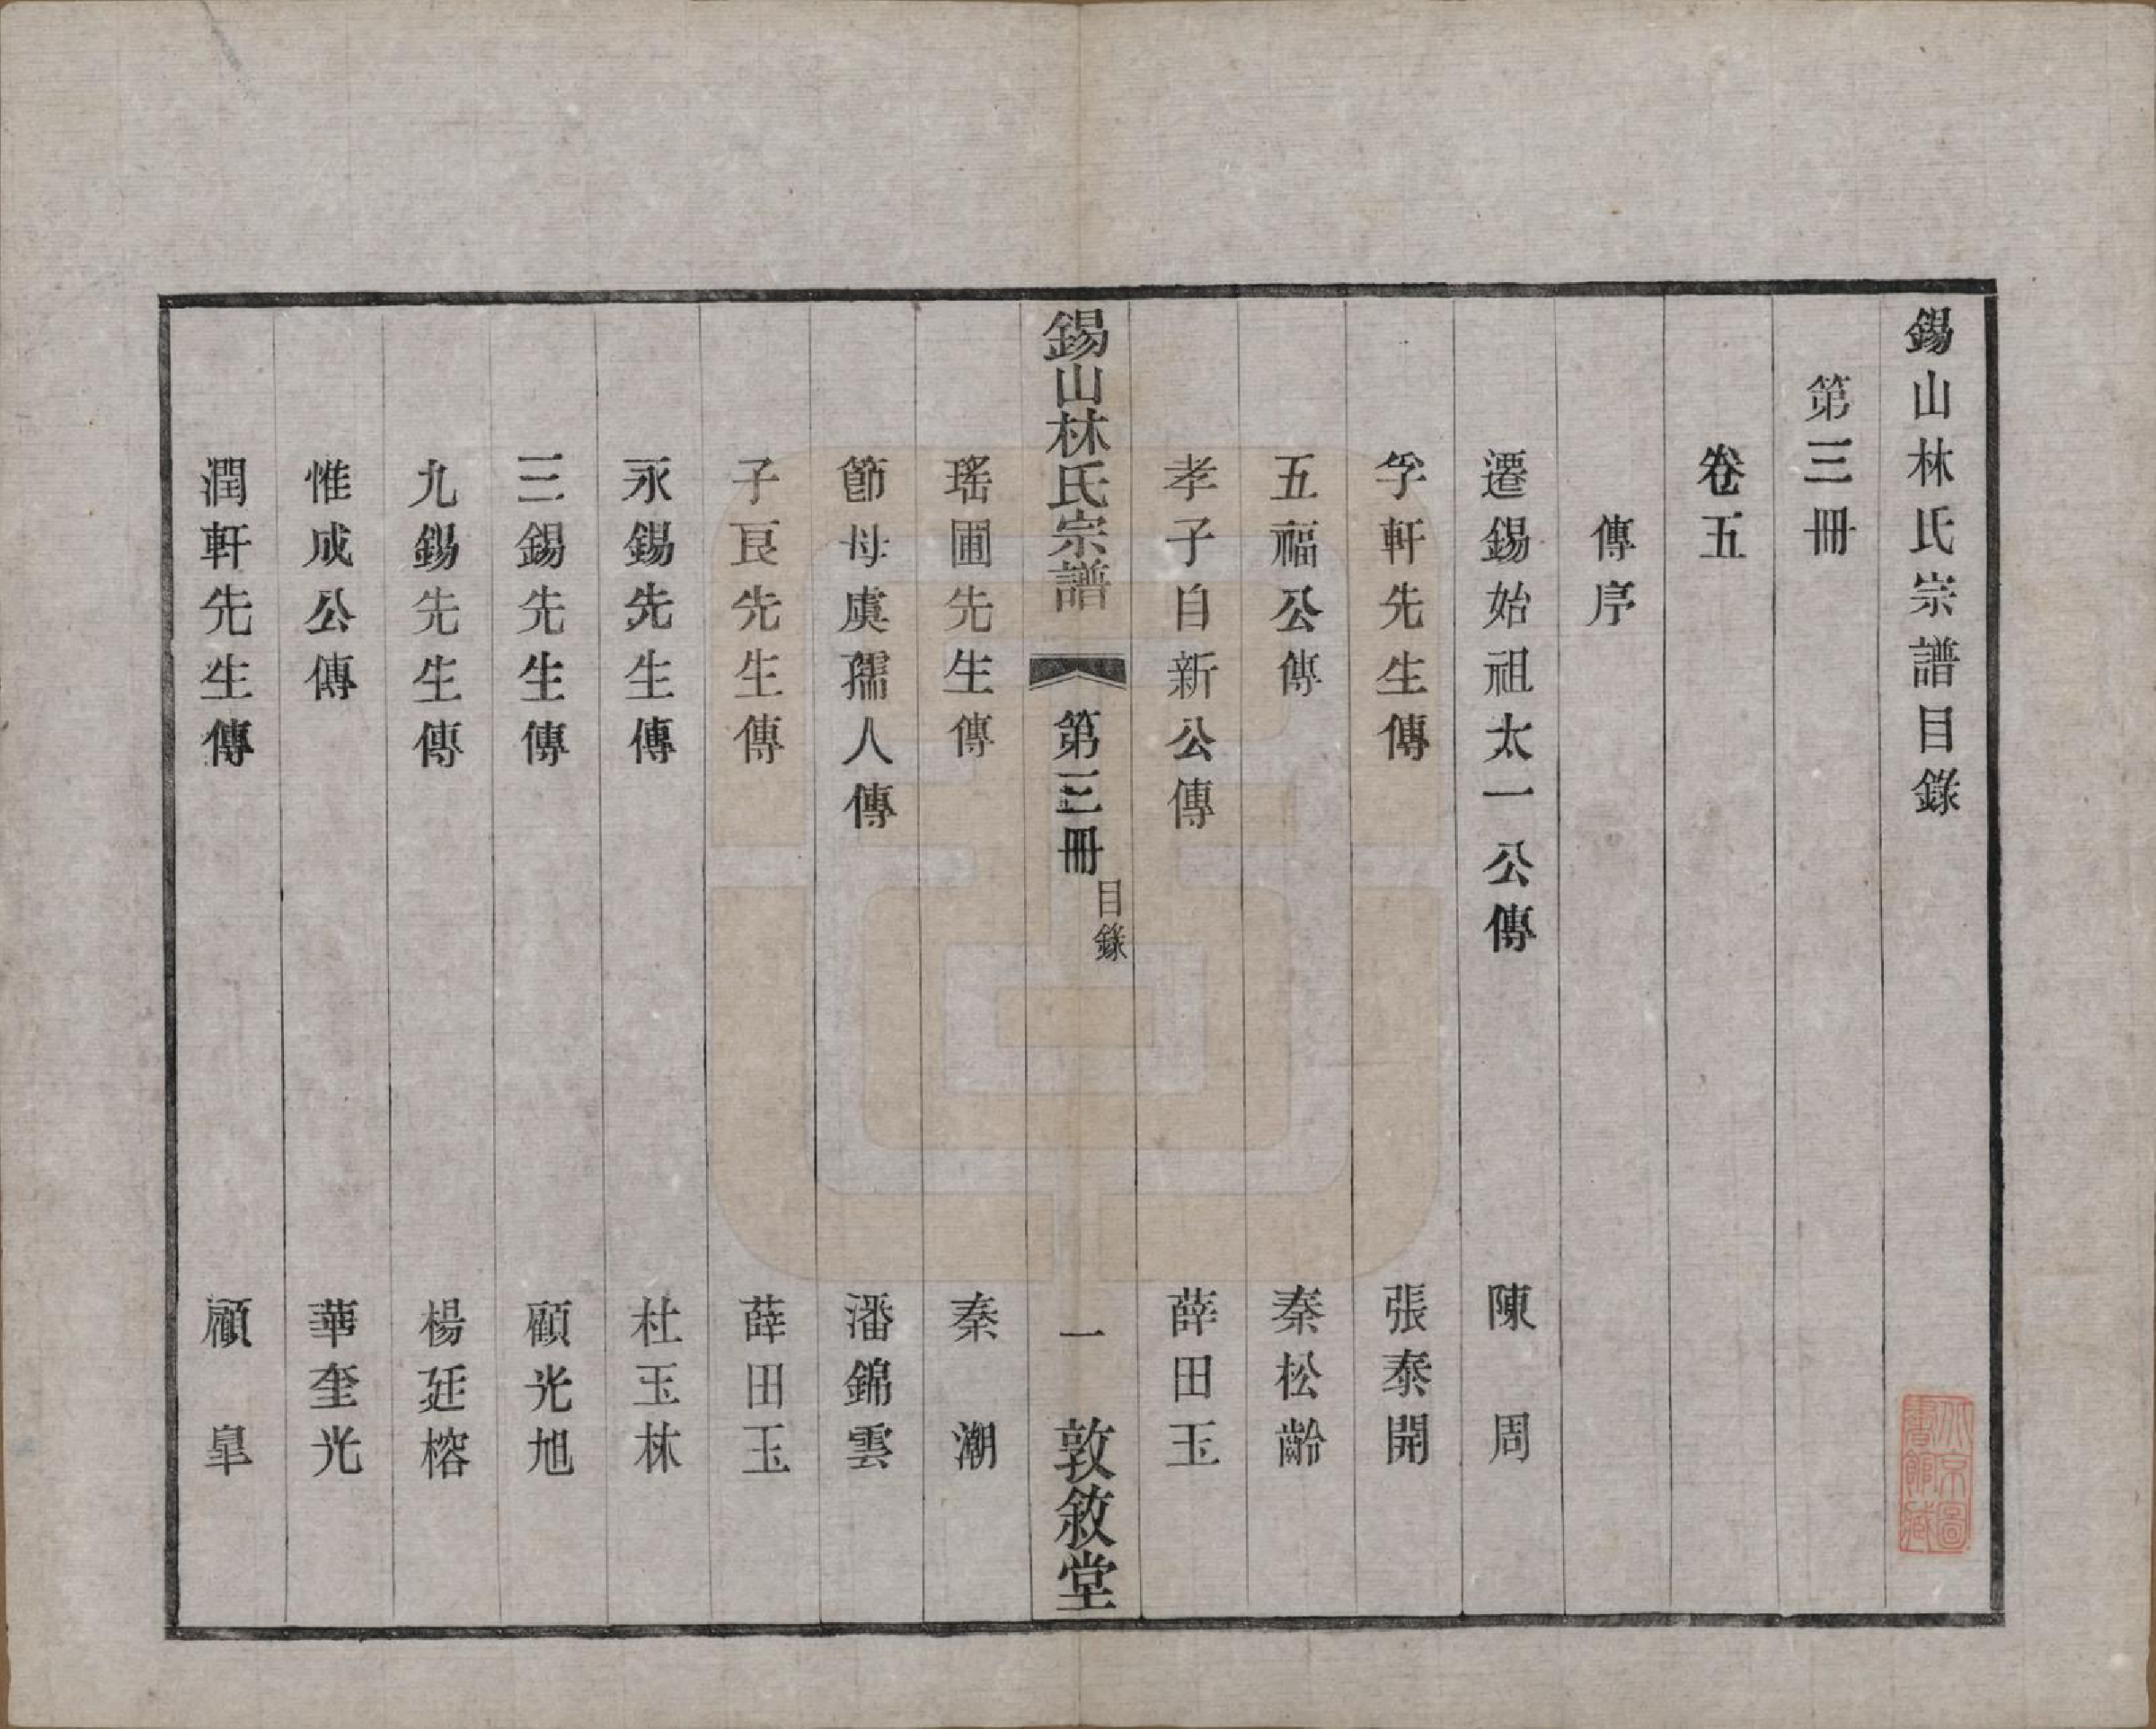 錫山林氏宗譜目錄
第三冊
卷五
傳序
遷錫始祖太一公傳 陳周
孚軒先生傳 張泰開
五福公傳 秦松齡
孝子自新公傳 薛田玉
錫山林氏宗譜 第三冊 目錄 一 敦敘堂
瑤圃先生傳 秦潮
節母虞孺人傳 潘錦雲
子良先生傳 薛田玉
永錫先生傳 杜玉林
三錫先生傳 顧光旭
九錫先生傳 楊廷榕
惟成公傳 華奎光
潤軒先生傳 顧皐
北京圖書館藏